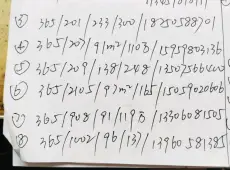 ③ 365/201/233/300/18250588701
④ 365/207/91m²/1108/15959803136
⑤ 365/209/138/248/13507566400
⑥ 365/2105/97m²/165/15059020606
⑦ 365/908/91/1198/13306081505
⑧ 365/1002/96/137/13960581385